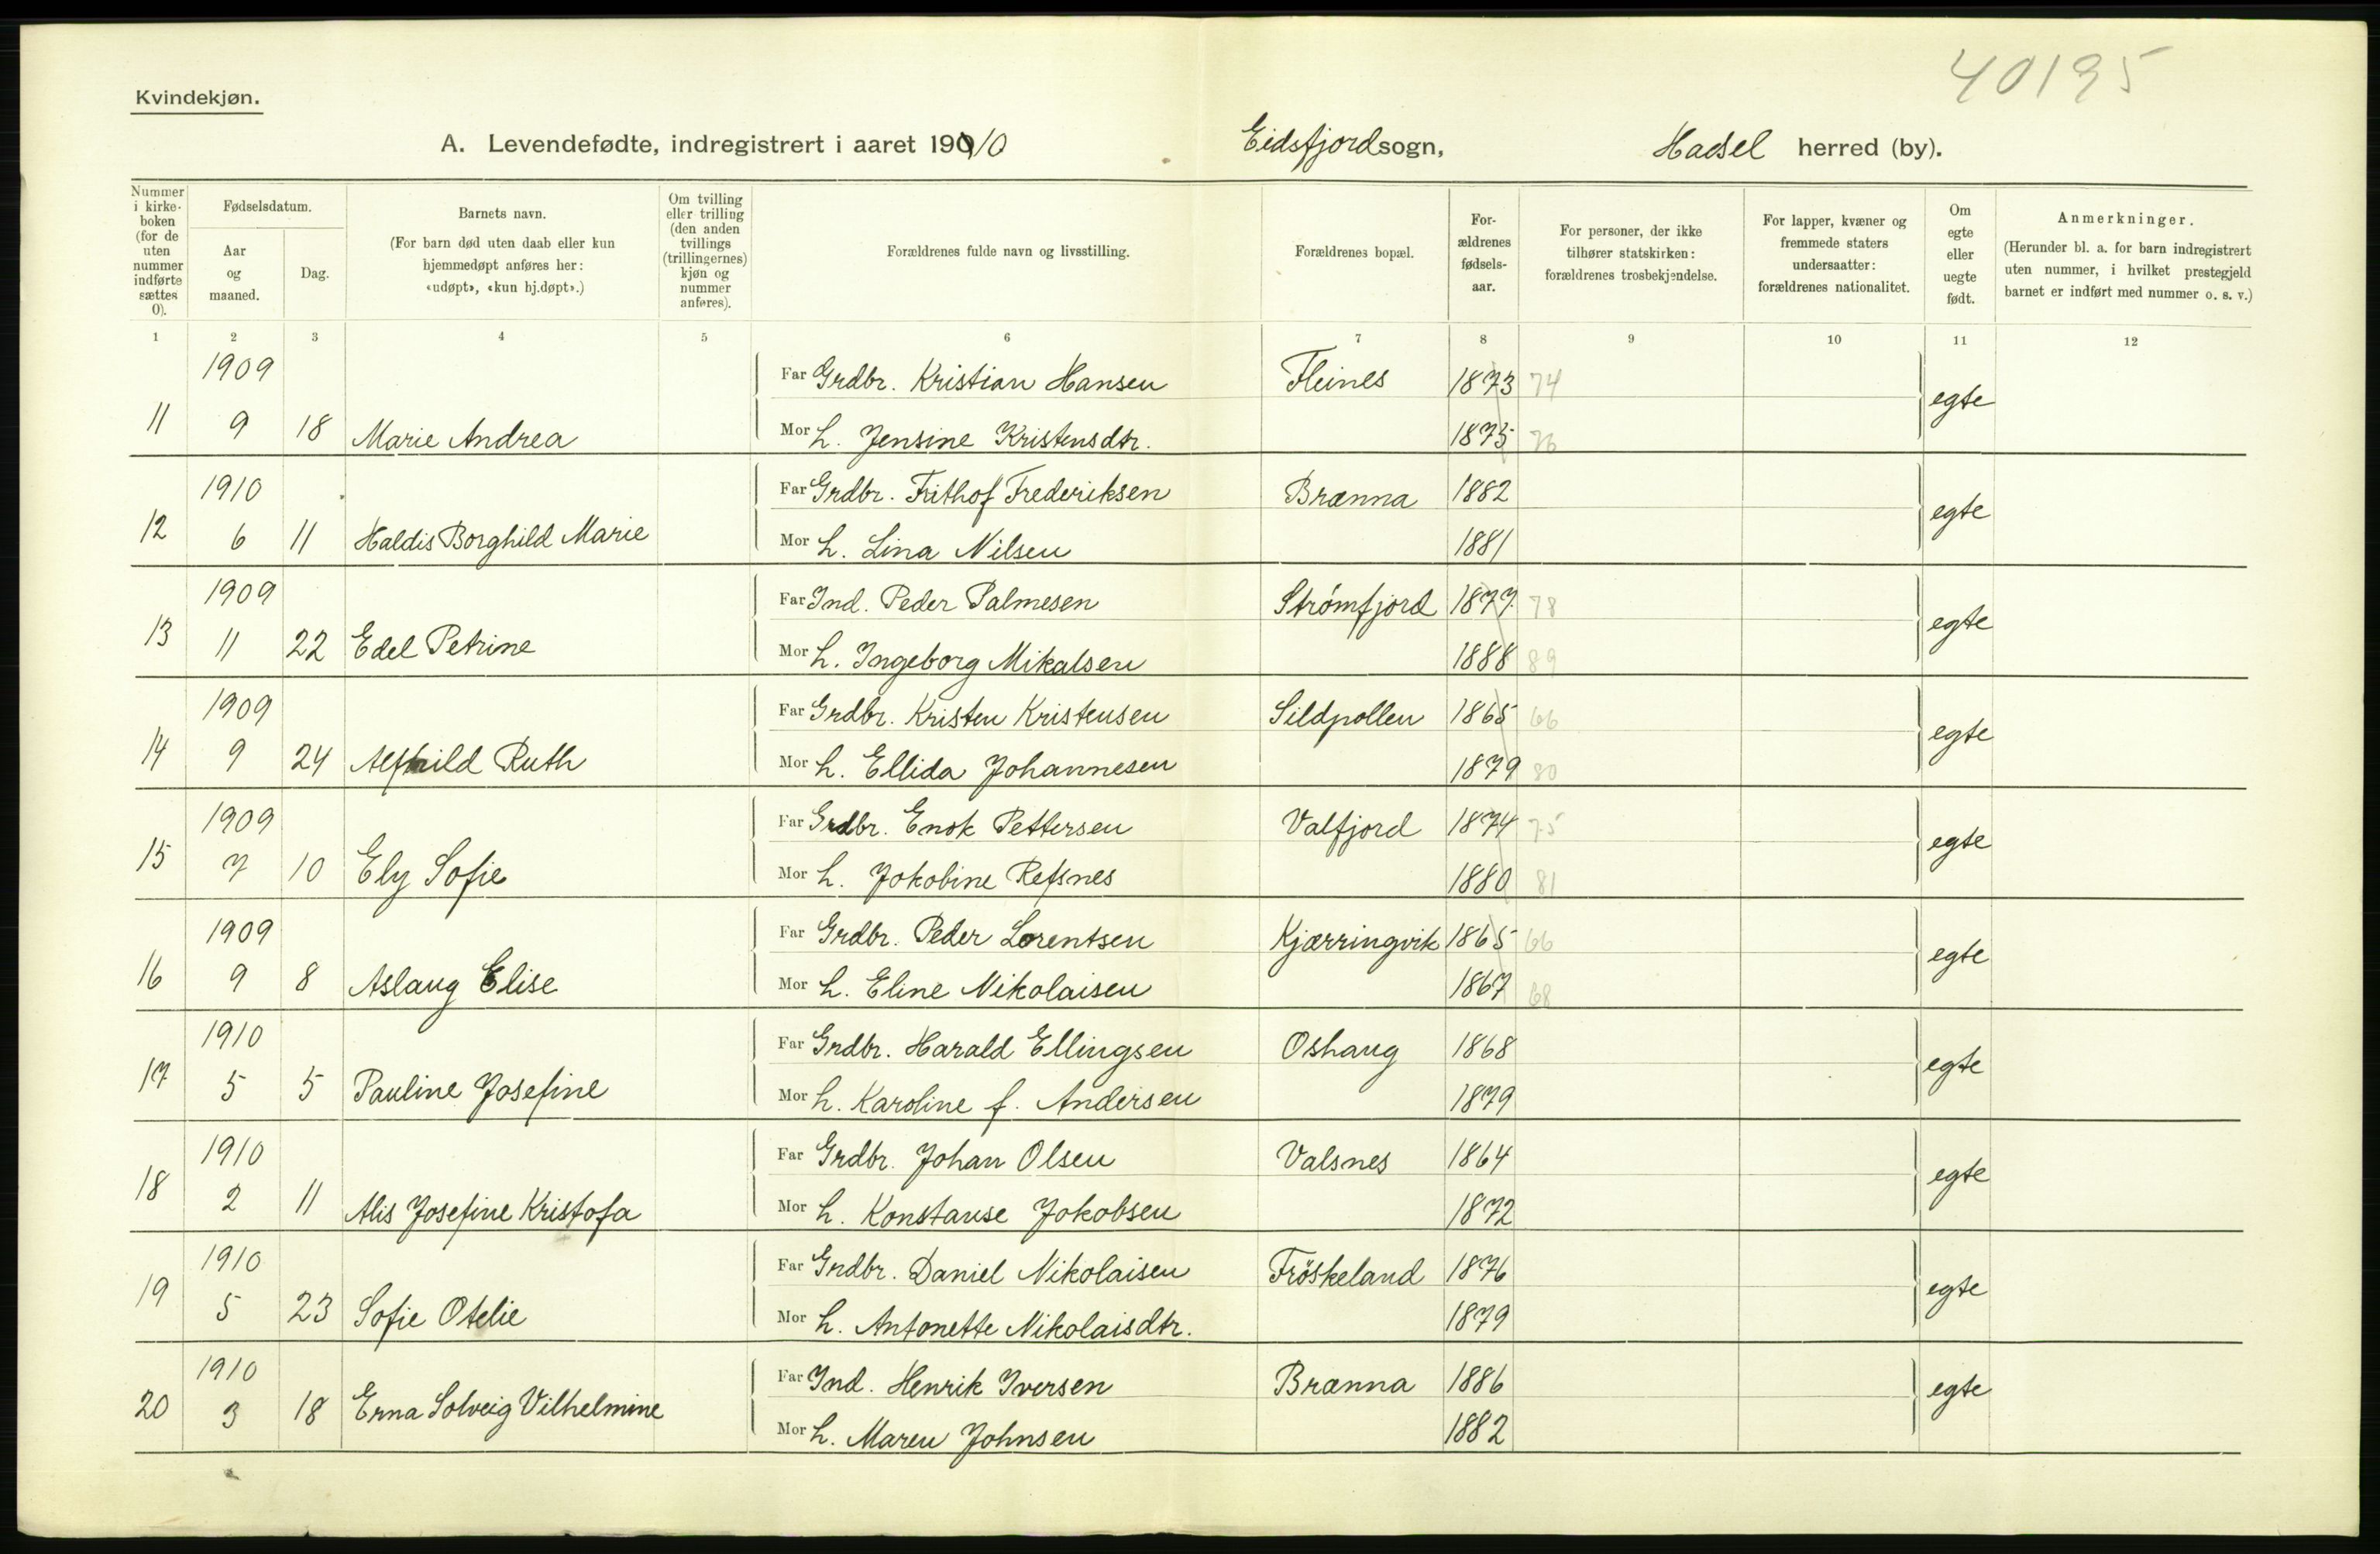 40195
Kvindekjøn.
A. Levendefødte, indregistrert i aaret 1910 Eidsfjord sogn, Hadsel herred (by).
Nummer i kirkeboken (for de uten nummer indførte sættes 0).
Fødselsdatum.
Aar og maaned.
Dag.
Barnets navn.
(For barn død uten daab eller kun hjemmedøpt anføres her: «udøpt», «kun hj.døpt».)
Om tvilling eller trilling (den anden tvillings (trillingernes) kjøn og nummer anføres).
Forældrenes fulde navn og livsstilling.
Forældrenes bopæl.
Forældrenes fødselsaar.
For personer, der ikke tilhører statskirken: forældrenes trosbekjendelse.
For lapper, kvæner og fremmede staters undersaatter: forældrenes nationalitet.
Om egte eller uegte født.
Anmerkninger.
(Herunder bl. a. for barn indregistrert uten nummer, i hvilket prestegjeld barnet er indført med nummer o. s. v.)
1 2 3 4 5 6 7 8 9 10 11 12
1909 Far Grdbr. Kristian Hansen Fleines 1873 74 egte
11 9 18 Marie Andrea Mor h. Jensine Kristensdtr. 1875 76
1910 Far Grdbr. Frithof Frederiksen Brænna 1882 egte
12 6 11 Haldis Borghild Marie Mor h. Lina Nilsen 1881
1909 Far Ind. Peder Palmesen Strømfjord 1877 78 egte
13 11 22 Edel Petrine Mor h. Ingeborg Mikalsen 1888 89
1909 Far Grdbr. Kristen Kristensen Sildpollen 1865 66 egte
14 9 24 Alfhild Ruth Mor h. Ellida Johannesen 1879 80
1909 Far Grdbr. Enok Pettersen Valfjord 1874 75 egte
15 7 10 Ely Sofie Mor h. Jokobine Refsnes 1880 81
1909 Far Grdbr. Peder Lorentsen Kjærringvik 1865 66 egte
16 9 8 Aslaug Elise Mor h. Eline Nikolaisen 1867 68
1910 Far Grdbr. Harald Ellingsen Oshaug 1868 egte
17 5 5 Pauline Josefine Mor h. Karoline f. Andersen 1879
1910 Far Grdbr. Johan Olsen Valsnes 1864 egte
18 2 11 Alis Josefine Kristofa Mor h. Konstanse Jokobsen 1872
1910 Far Grdbr. Daniel Nikolaisen Fröskeland 1876 egte
19 5 23 Sofie Otelie Mor h. Antonette Nikolaisdtr. 1879
1910 Far Ind. Henrik Iversen Brænna 1886 egte
20 3 18 Erna Solveig Vilhelmine Mor h. Maren Johnsen 1882